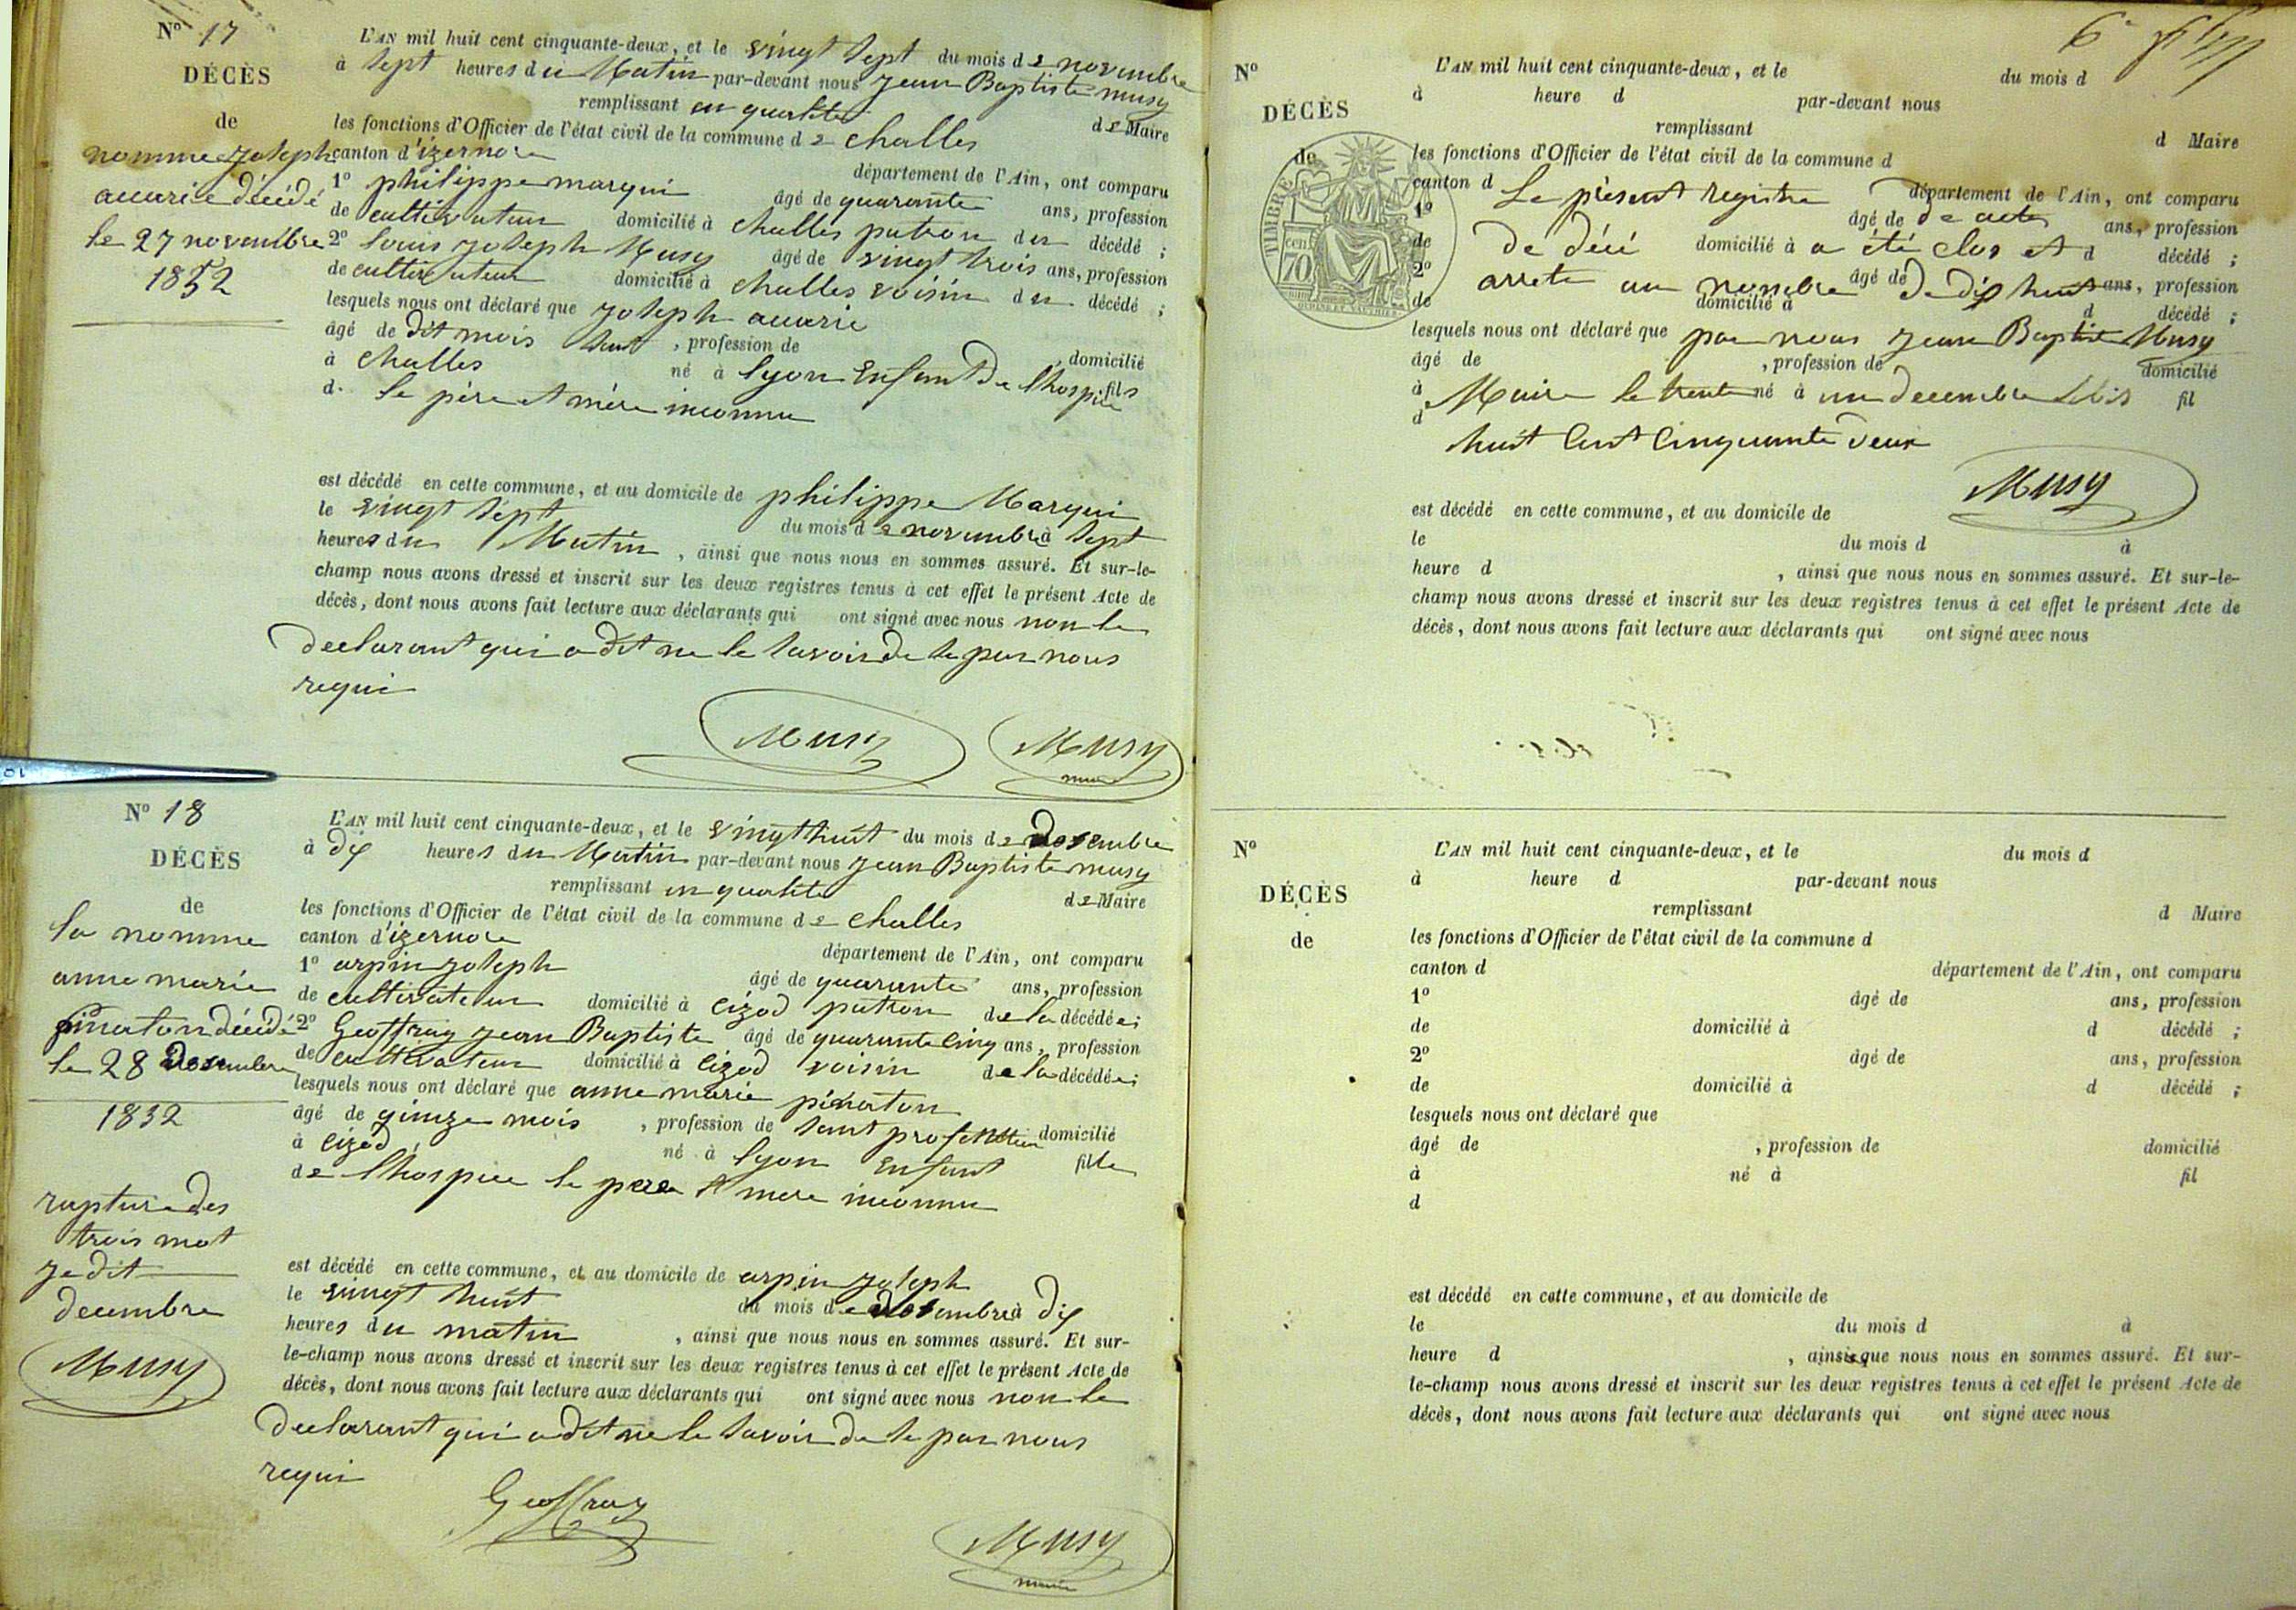 No 17
DÉCÈS
de
nomme Joseph
acurie décédé
le 27 novembre
1852
L'AN mil huit cent cinquante-deux, et le vingt sept du mois de novembre
à sept heures du Matin par-devant nous Jean Baptiste musy
remplissant en qualite de Maire
les fonctions d'Officier de l'état civil de la commune de challes
canton d'izernore département de l'Ain, ont comparu
1o philippe marqui âgé de quarante ans, profession
de cultivateur domicilié à challes patron du décédé ;
2o louis joseph Musy âgé de vingt trois ans, profession
de cultivateur domicilié à challes voisin du décédé ;
lesquels nous ont déclaré que joseph acurie
âgé de dit mois , profession de domicilié
à challes né à lyon Enfant De lhospice fils
d. le père et mère inconnu
est décédé en cette commune, et au domicile de philippe Marqui
le vingt sept du mois de novembre à sept
heures du Matin , ainsi que nous nous en sommes assuré. Et sur-le-
champ nous avons dressé et inscrit sur les deux registres tenus à cet effet le présent Acte de
décès, dont nous avons fait lecture aux déclarants qui ont signé avec nous non le
declarant qui a dit ne le savoir de se par nous
requi
Musy Musy
maire
No 18
DÉCÈS
de
la nomme
anne marie
pinaton décédé
le 28 Desembre
1852
rapture des
trois mot
je dit
decembre
Musy
L'AN mil huit cent cinquante-deux, et le vingt huit du mois de Desembre
à dix heures du Matin par-devant nous jean Baptiste musy
remplissant en qualite de Maire
les fonctions d'Officier de l'état civil de la commune de challes
canton d'izernore département de l'Ain, ont comparu
1o arpin joseph âgé de quarante ans, profession
de cultivateur domicilié à cizod patron de la décédée ;
2o Geoffray jean Baptiste âgé de quarante cinq ans, profession
de cultivateur domicilié à cizod voisin de la décédée ;
lesquels nous ont déclaré que anne marie pinaton
âgé de quinze mois , profession de sant profession domicilié
à cizod né à lyon Enfant fille
de lhospice le pere et mere inconnu
est décédé en cette commune, et au domicile de arpin joseph
le vingt huit du mois de Desembre à dix
heures du matin , ainsi que nous nous en sommes assuré. Et sur-
le-champ nous avons dressé et inscrit sur les deux registres tenus à cet effet le présent Acte de
décès, dont nous avons fait lecture aux déclarants qui ont signé avec nous non le
declarant qui a dit ne le savoir de se par nous
requi
Geoffray
Musy
maire
No
DÉCÈS
de
TIMBRE
70 cen
L'AN mil huit cent cinquante-deux, et le du mois d
à heure d par-devant nous
remplissant d Maire
les fonctions d'Officier de l'état civil de la commune d
canton d Le présent registre département de l'Ain, ont comparu
1o âgé de de acte ans, profession
de De décé domicilié à a été clos et d décédé ;
2o arrete au nombre âgé de De dix huit ans, profession
de domicilié à d décédé ;
lesquels nous ont déclaré que par nous jean Baptiste Musy
âgé de , profession de domicilié
à Maire le trente né à un decembre fil
d huit Cent Cinquante deux
Musy
est décédé en cette commune, et au domicile de
le du mois d à
heure d , ainsi que nous nous en sommes assuré. Et sur-le-
champ nous avons dressé et inscrit sur les deux registres tenus à cet effet le présent Acte de
décès, dont nous avons fait lecture aux déclarants qui ont signé avec nous
No
DÉCÈS
de
L'AN mil huit cent cinquante-deux, et le du mois d
à heure d par-devant nous
remplissant d Maire
les fonctions d'Officier de l'état civil de la commune d
canton d département de l'Ain, ont comparu
1o âgé de ans, profession
de domicilié à d décédé ;
2o âgé de ans, profession
de domicilié à d décédé ;
lesquels nous ont déclaré que
âgé de , profession de domicilié
à né à fil
d
est décédé en cette commune, et au domicile de
le du mois d à
heure d , ainsi que nous nous en sommes assuré. Et sur-
le-champ nous avons dressé et inscrit sur les deux registres tenus à cet effet le présent Acte de
décès, dont nous avons fait lecture aux déclarants qui ont signé avec nous